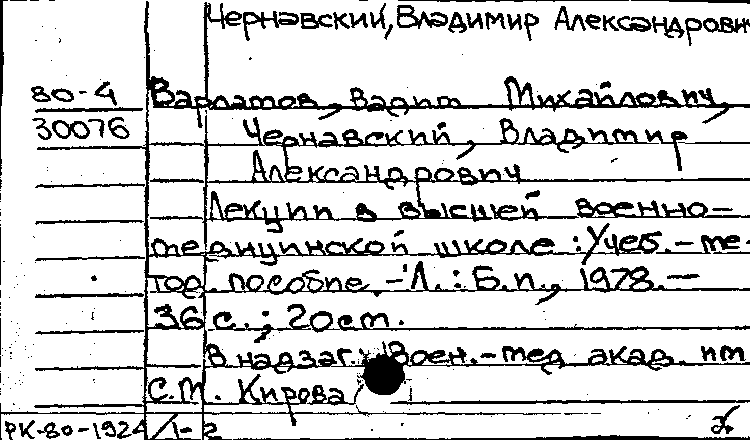 Чернавский, Владимир Александрович
80-4
30076
Варламов, Вадим Михайлович,
Чернавский, Владимир
Александрович
Лекции в высшей военно-
медицинской школе : Учеб.-ме-
тод. пособие. - Л. : Б.и., 1978. -
36 с. ; 20 см.
В надзаг.: Воен.-мед. акад. им
С.М. Кирова
РК-80-1924/1-2